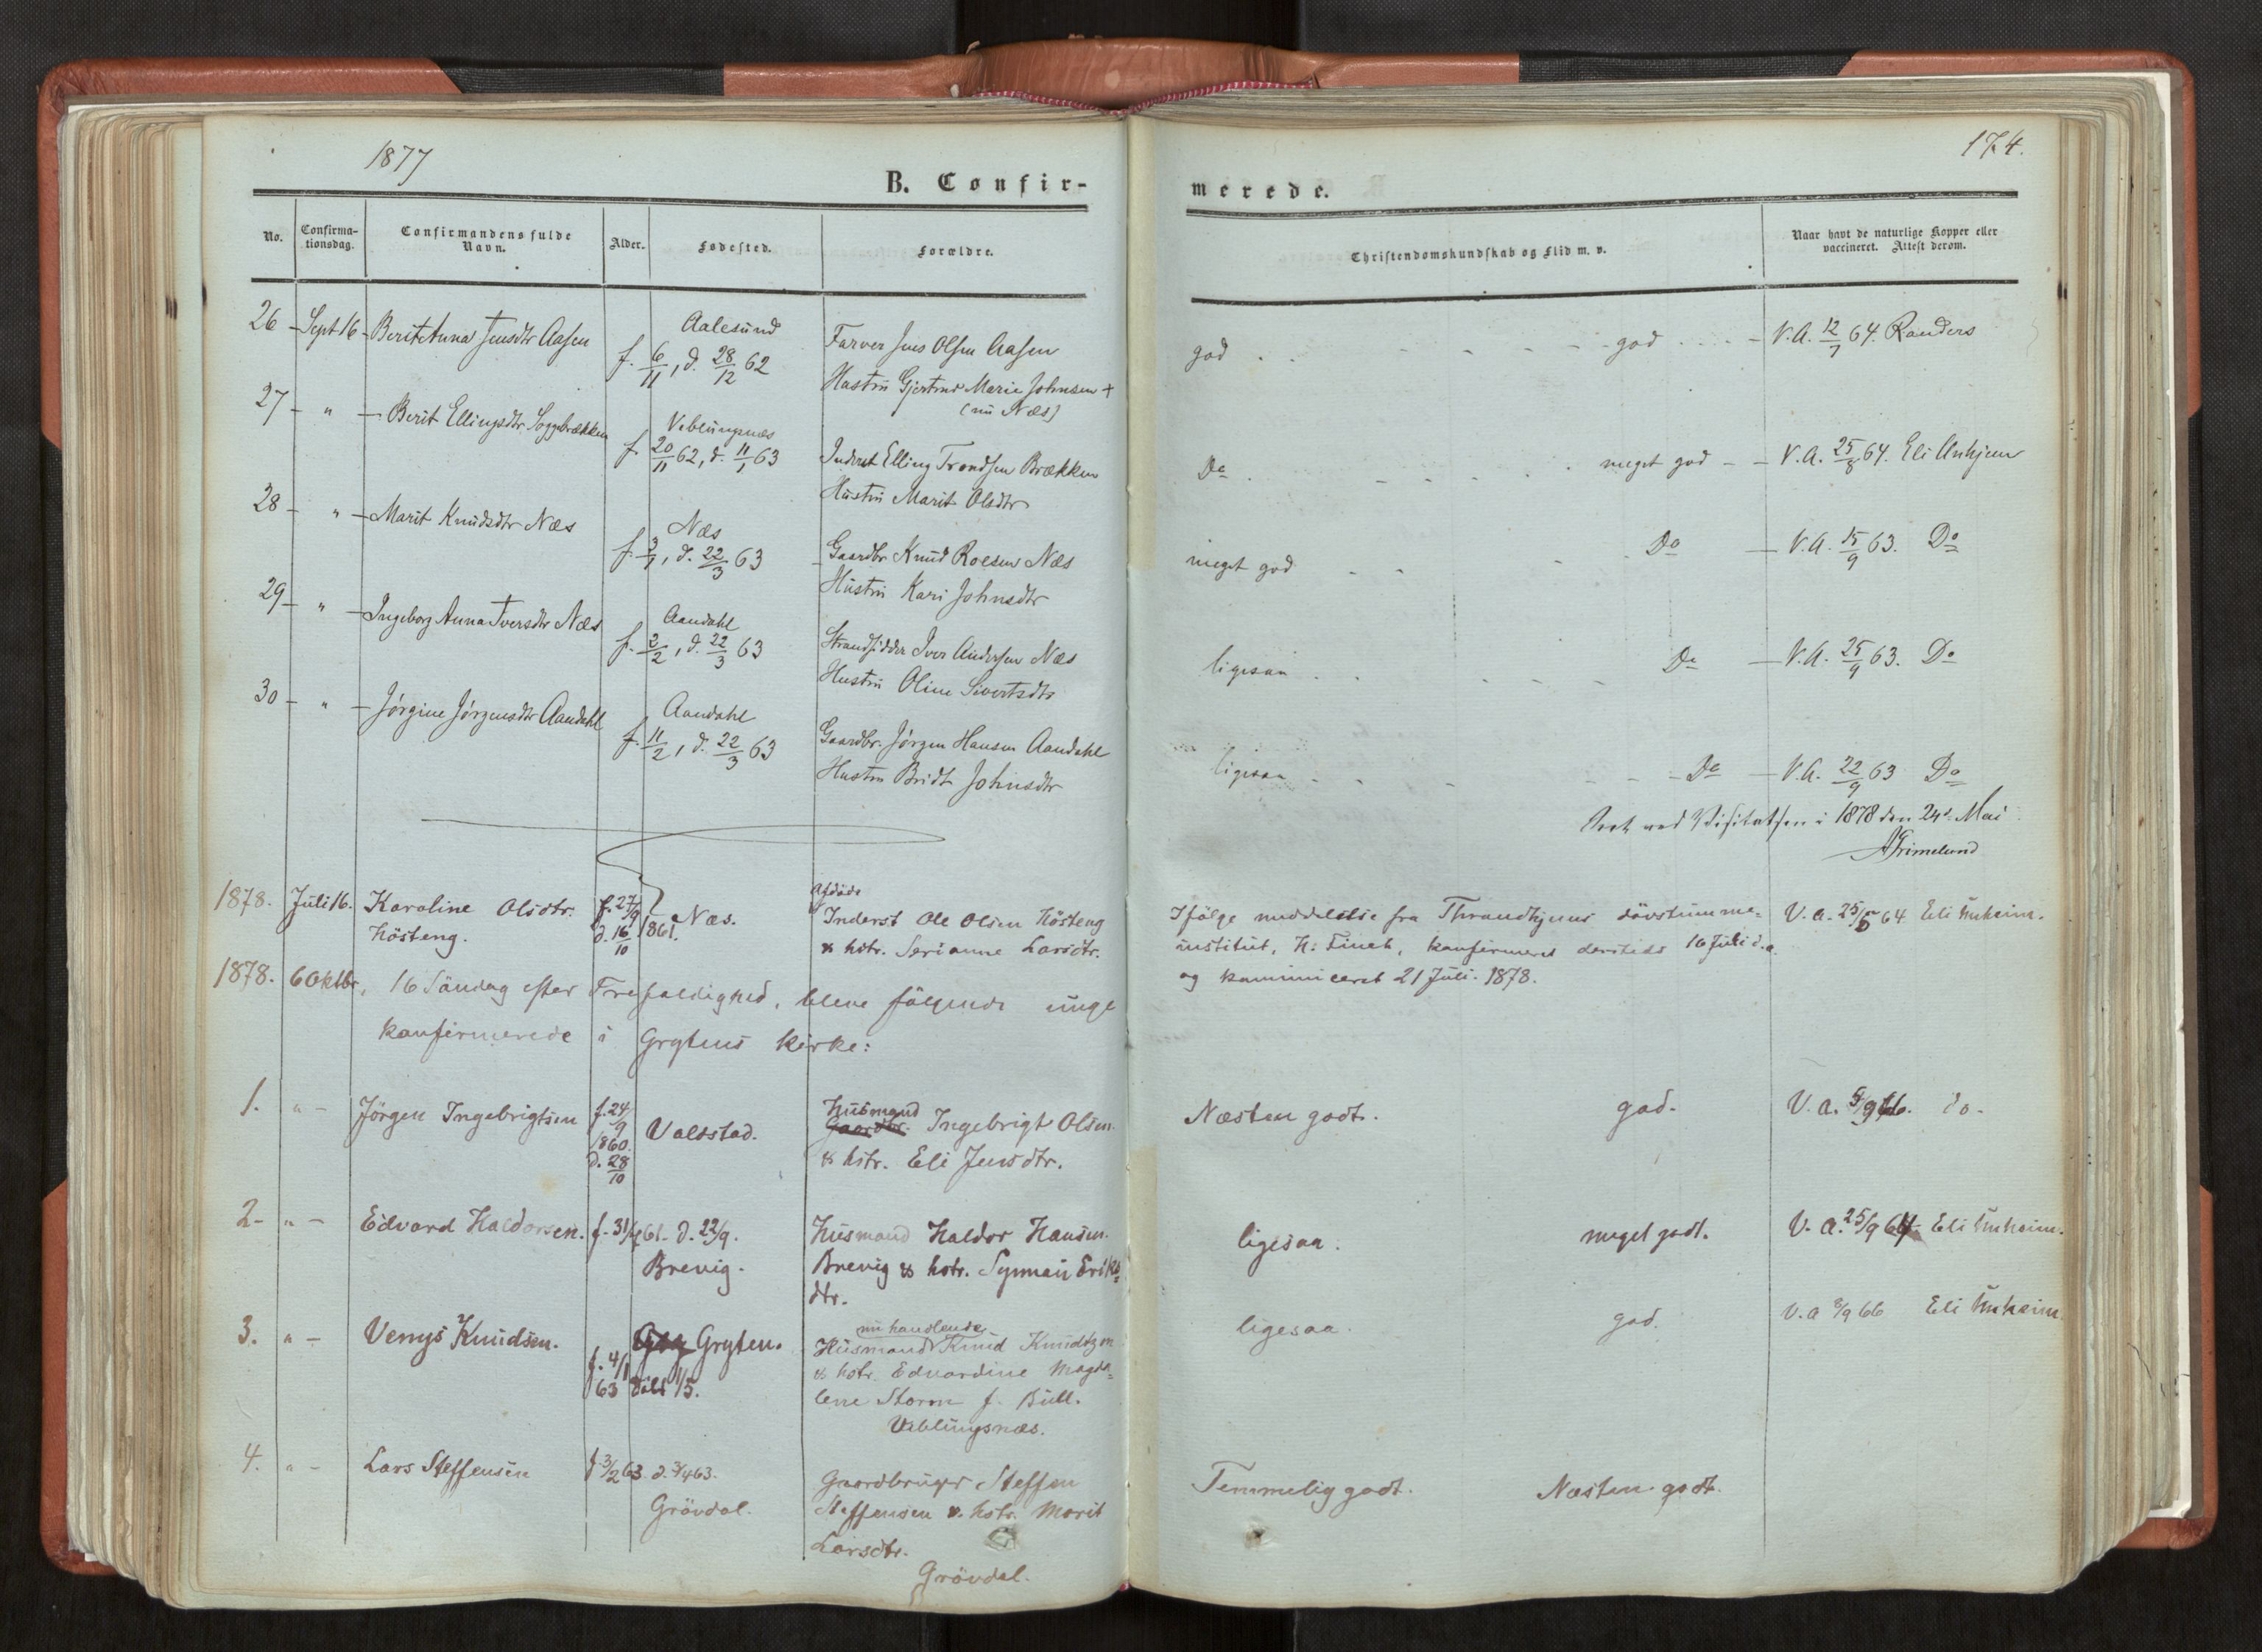 1877
174.
B. Confir-
merede.
No.
Confirma-
tionsdag.
Confirmandens fulde
Navn.
Alder.
Fødested.
Forældre.
Christendomskundskab og Flid m. v.
Naar havt de naturlige Kopper eller
vaccineret. Attest derom.
26 - Sept 16 - Berit Anna Jensdtr Aasen
Aalesund
f. 6/11, d. 28/12 62
Farver Jens Olsen Aasen
Hustru Gjertrud Marie Johnsen +
(nu Næs)
god
god
V.A. 12/7 64. Randers
27 - " - Berit Ellingsdtr Soggebrækken
Veblungsnæs
f. 20/11 62, d. 11/1 63
Inderst Elling Trondsen Brækken
Hustru Marit Olsdtr
Do
meget god
V.A. 25/8 64. Eli Unhjem
28 - " - Marit Knudsdtr Næs
Næs
f. 3/1, d. 22/3 63
Gaardbr Knud Roesen Næs
Hustru Kari Johnsdtr
meget god
Do
V.A. 15/9 63. Do
29 - " - Ingeborg Anna Iversdtr Næs
Aandahl
f. 2/2, d. 22/3 63
Strandsidder Iver Andersen Næs
Hustru Oline Sivertsdtr
ligesaa
Do
V.A. 25/9 63. Do
30 - " - Jørgine Jørgensdtr Aandahl
Aandahl
f. 11/2, d. 22/3 63
Gaardbr. Jørgen Hansen Aandahl
Hustru Bridt Johnsdtr
ligesaa
Do
V.A. 22/9 63 Do
ved Visitatsen i 1878 den 24de Mai
Grimelund
1878. Juli 16. Karoline Olsdtr.
Hösteng.
f. 27/9
d. 16/10 1861. Næs.
Afdöde
Inderst Ole Olsen Hösteng
& hstr. Serianne Larsdtr.
Ifölge meddelelse fra Throndhjems dövstumme-
institut, H. Finch, konfirmeret dersteds 16 Juli d.a.
og kommuniceret 21 Juli. 1878.
V. a. 25/5 64 Eli Unheim.
1878. 6 Oktbr, 16 Söndag efter Trefoldighed, bleve fölgende unge
konfirmerede i Grytens kirke:
1. " - Jörgen Ingebrigtsen
f. 24/9
1860.
d. 28/10
Voldstad.
Husmand
Gaardbr. Ingebrigt Olsen
& hstr. Eli Jensdtr.
Næsten godt.
god.
V. a. 5/9 66. do.
2 - " - Edvard Haldorsen.
f. 31/7 61. d. 22/9.
Brevig.
Husmand Haldor Hansen
Brevig & hstr. Synnau Eriks-
dtr.
ligesaa.
meget godt.
V. a. 25/9 64 Eli Unheim.
3. " - Venys Knudsen.
Gryten.
f. 4/1
63 döbt 1/5.
nu handlende
Husmand Knud Knudtzon
& hstr. Edvardine Magda-
lene Storm f. Bull.
Veblungsnæs.
ligesaa.
god.
V. a 8/9 66 Eli Unheim.
4. " - Lars Steffensen
f 3/2 63. d. 3/4 63.
Grövdal.
Gaardbruger Steffen
Steffensen & hstr. Marit
Larsdtr.
Grövdal.
Temmelig godt.
Næsten godt.